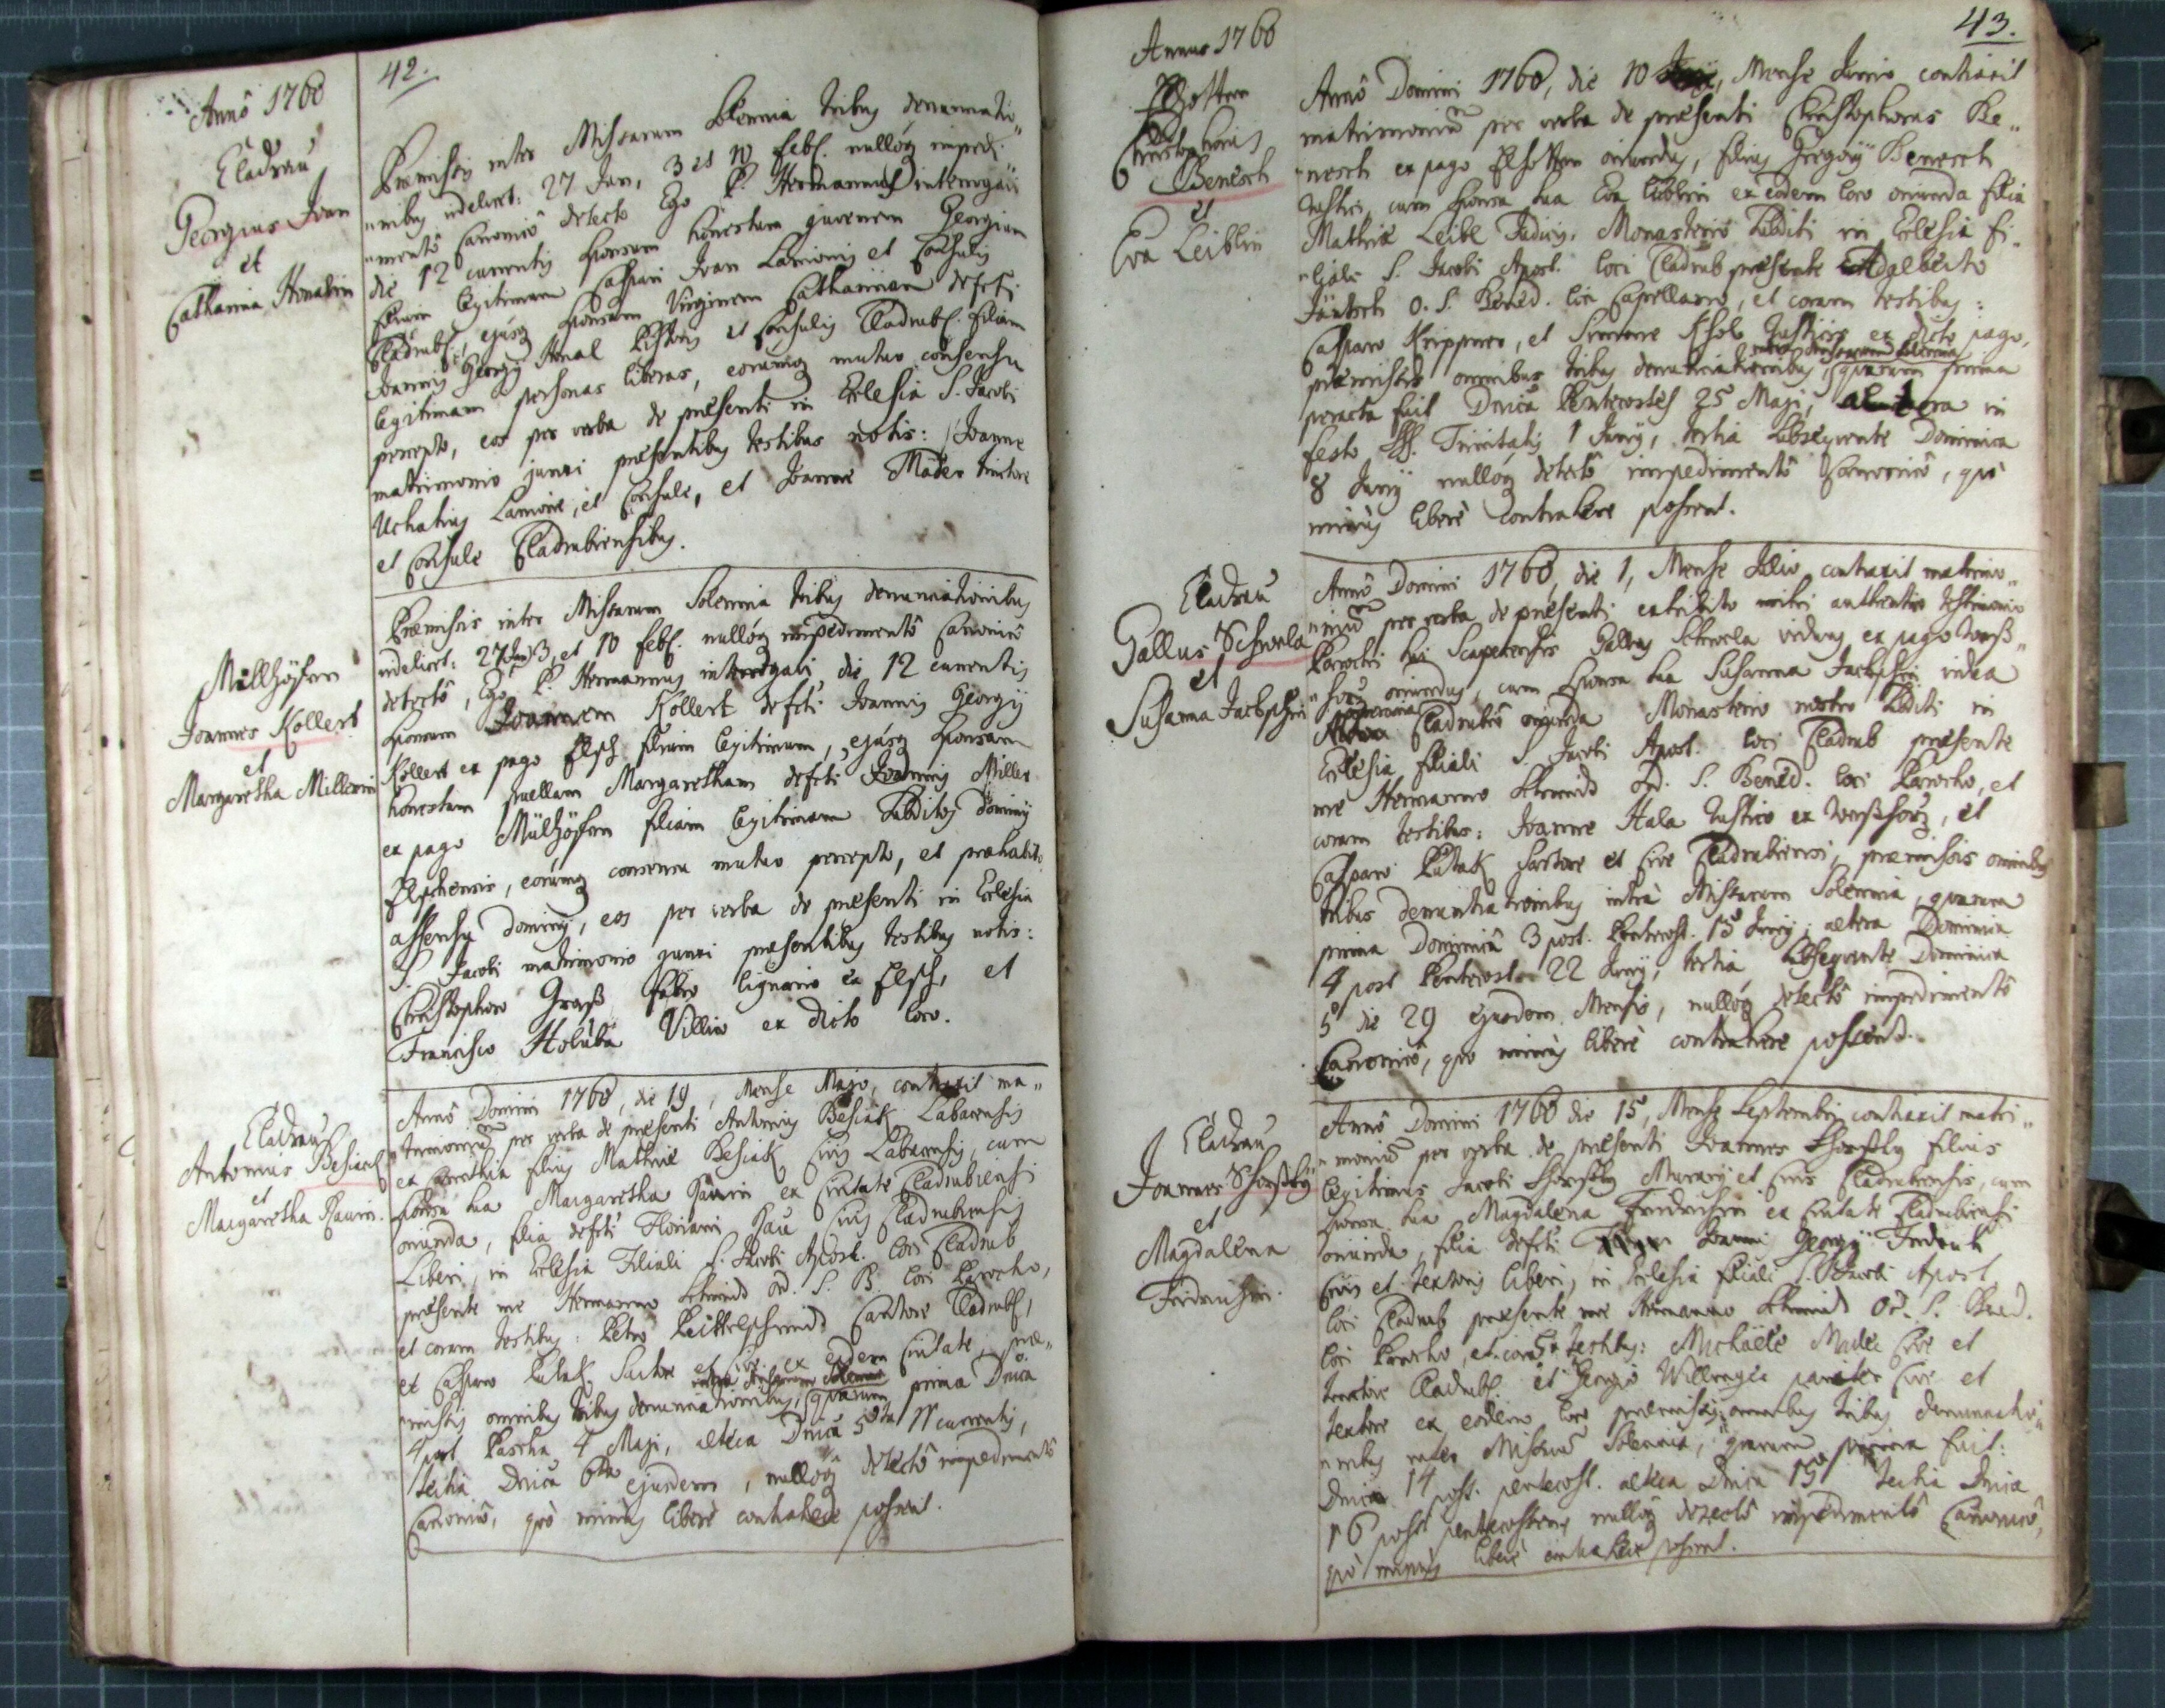 Annô 1760
42.
Cladrau
Georgius Ivan
et
Catharina Hrnalin
Præmissis inter Missarum Solemnia tribus denunciatio„
„nibus videlicet: 27 Jan, 3 et 10 feb. nullóq impedi„
„mentô Canonicô detecto Ego P. Hermannus interrogavi
die 12 currentis Sponsum honestum juvenem Georgium
filium legitimum Caspari Ivan Lanionis et Consulis
Cladrub., ejúsq Sponsam Virginem Catharinam defcti
Joannis Georgÿ Hrnal Pistoris et Consulis Cladrub. filiam
legitimam personas liberas, eorumq mutuo consensu
percepto, eos per verba de præsenti in Eclesia S. Jacobi
matrimonio junxi præsentibus testibus notis: Joanne
Uchatius Lanione, et Consule, et Joanne Mader
et Consule Cladrubiensibus.
Müllhöfen
Joannes Kollert
et
Margaretha Millerin
Præmissis inter Missarum Solemnia tribus denunciationibus
videlicet: 27 Jan 3, et 10 feb. nullóq impedimentô Canonicô
detectô, Ego P. Hermannus interrogavi, die 12 currentis
Sponsum Joannem Kollert defcti Joannis Georgÿ
Kollert ex pago Elsch filium legitimum, ejúsq Sponsam
honestam puellam Margaretham defcti Joannis Miller
ex pago Müllhöfen filiam legitimam Subditos Dominÿ
Elschensis, eorúmq consensu mutuo percepto, et præhabito
assensu Dominÿ, eos per verba de præsenti in Eclesia
S. Jacobi matrimonio junxi præsentibus testibus notis:
Christophoro Graß fabro lignario ex Elsch, et
Francisco Holuba Villico ex dicto loco.
Cladrau
Antonius Besiack
et
Margaretha Rauin.
Annô Domini 1760, die 19, Mense Majo, contraxit ma„
„trimoniũ per verba de præsenti Antonius Besiak Labacensis
ex Carinthia filius Mathiæ Besiak Civis Labacensis, cum
sponsa sua Margaretha Rauin ex Civitate Cladrubiensi
oriunda, filia defcti Floriani Rau Civis Cladrubiensis
Liberi, in Eclesia Filiali S. Jacobi Apost. loci Cladrub
præsente me Hermanno Schmid Ord. S. B. loci Parocho,
et coram testibus: Petro Cantore Cladrub,
et Casparo Putak Sartore et Cive ex eadem Civitate, præ„
intra Missarum Solemnia
„missis omnibus tribus denunciationibus, quarum prima Dnicâ
4 post Pascha 4 Maji, altera Dnicâ 5ta 11 currentis,
tertia Dnicâ 6ta ejusdem, nullóq detectô impedimentô
Canonicô, quò minùs liberè contrahere possent.
Annus 1760
43.
Elhotten
Christophorus
Benesch
et
Eva Leiblin
Annô Domini 1760, die 10, Mense Junio contraxit
matrimoniũ per verba de præsenti Christophorus Be„
„nesch ex pago Elhotten oriundus, filius Gregorÿ Benesch
rustici, cum sponsa sua Eva Leiblin ex eodem loco oriunda filia
Mathiæ Leibl Judicis, Monasterio Subditi in Eclesia fi„
„liali S. Jacobi Apost. loci Cladrub præsente Adalberto
Jäntsch O. S. Bened. loci Capellano, et coram testibus:
Casparo Krippner, et Simone Rusticis ex dicto pago,
intra Missarum Solemnia
præmissis omnibus tribus denunciationibus, quarum prima
peracta fuit Dnicâ Pentecostes 25 Maji, altera in
festo SS. Trinitatis 1 Junÿ, tertia subsequente Dominica
8 Junÿ nullóq detectô impedimentô Canonicô, quò
minùs liberè contrahere possent.
Cladrau
Gallus Schwela
et
Susanna Jackschin
Annô Domini 1760, die 1, Mense Julio, contraxit matrimo„
„niũ per verba de præsenti exhibito mihi authentico testimonio
Parochi sui Gallus Schwela viduus ex pago
oriundus, cum sponsa sua Susanna Jackschin vidua
Cladrubiô oriunda Monasterio nostro Subditi in
Eclesia filiali S. Jacobi Apost. loci Cladrub præsente
me Hermanno Schmid Ord. S. Bened. loci Parocho, et
coram testibus: Joanne Hala Rustico ex et
Casparo Putak Sartore et Cive Cladrubiensi, præmissis omnibus
tribus denuntiationibus intra Missarum Solemnia, quarum
prima Dominicâ 3 post. Pentecost. 15 Junÿ; altera Dominica
4 post Pentecost. 22 Junÿ, tertia subsequente Dominica
5 die 29 ejusdem Mensis, nullóq detectô impedimentô
Canonicô, quo minùs liberè contrahere possent.
Cladrau
Joannes
et
Magdalena
Fridrichin.
Annô Domini 1760 die 15, Mense Septembri contraxit matri„
„moniũ per verba de præsenti Joannes filius
legitimus Jacobi Murarÿ et Civis Cladrubiensis, cum
sponsa sua Magdalena Fridrichin ex Civitate Cladrubiensi
oriunda, filia defcti Joannis Georgÿ Fridrich
Civis et textoris liberi, in Eclesia filiali S. Jacobi Apost.
loci Cladrub præsente me Hermanno Schmid Ord. S. Bened.
loci Parocho, et coram testibus: Michaële Mader Cive et
textore Cladrub. et Georgio pariter Cive et
textore ex eodem loco præmissis omnibus tribus denunciatio„
„nibus inter Missarũ Solemnia, quarum prima fuit:
Dnica 14 post. pentecost. altera Dnica 15 tertia Dnica
16 post pentecosten nullóq detectô impedimentô Canonicô,
quò minùs liberè contrahere possent.